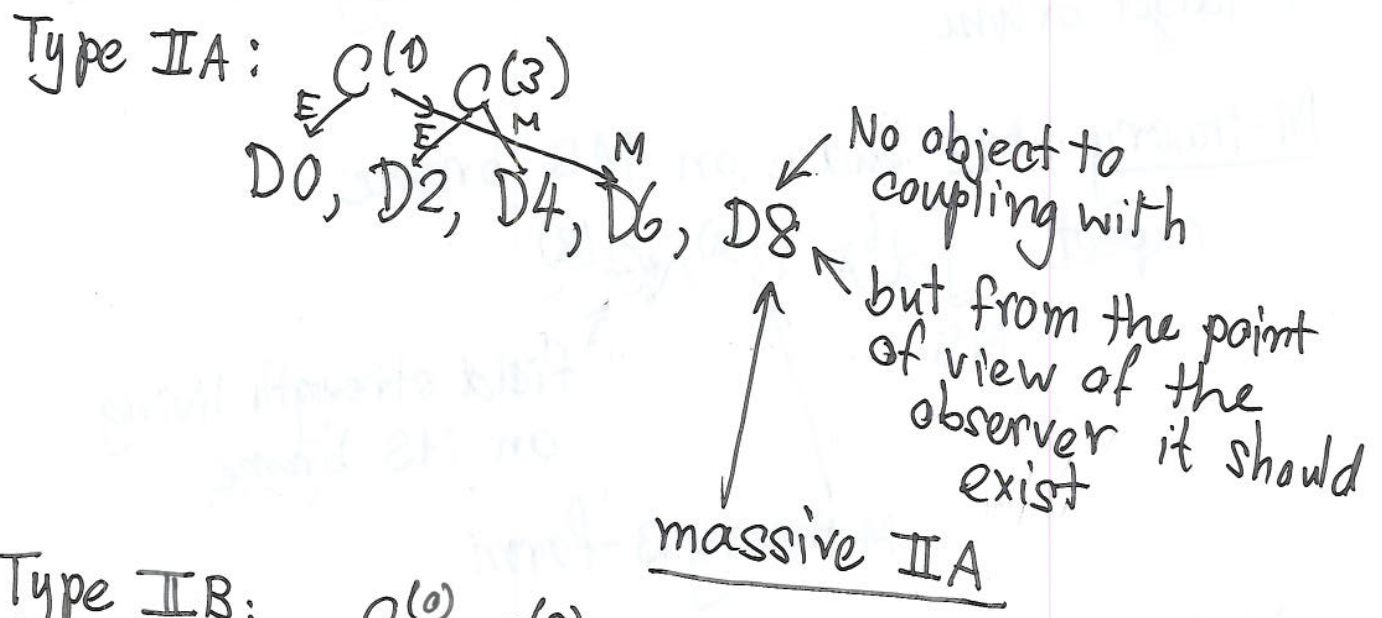 Type IIA:
C(1) C(3)
E E M M
D0, D2, D4, D6, D8
No object to
coupling with
but from the point
of view of the
observer it should
exist
massive IIA
Type IIB:
C(0)